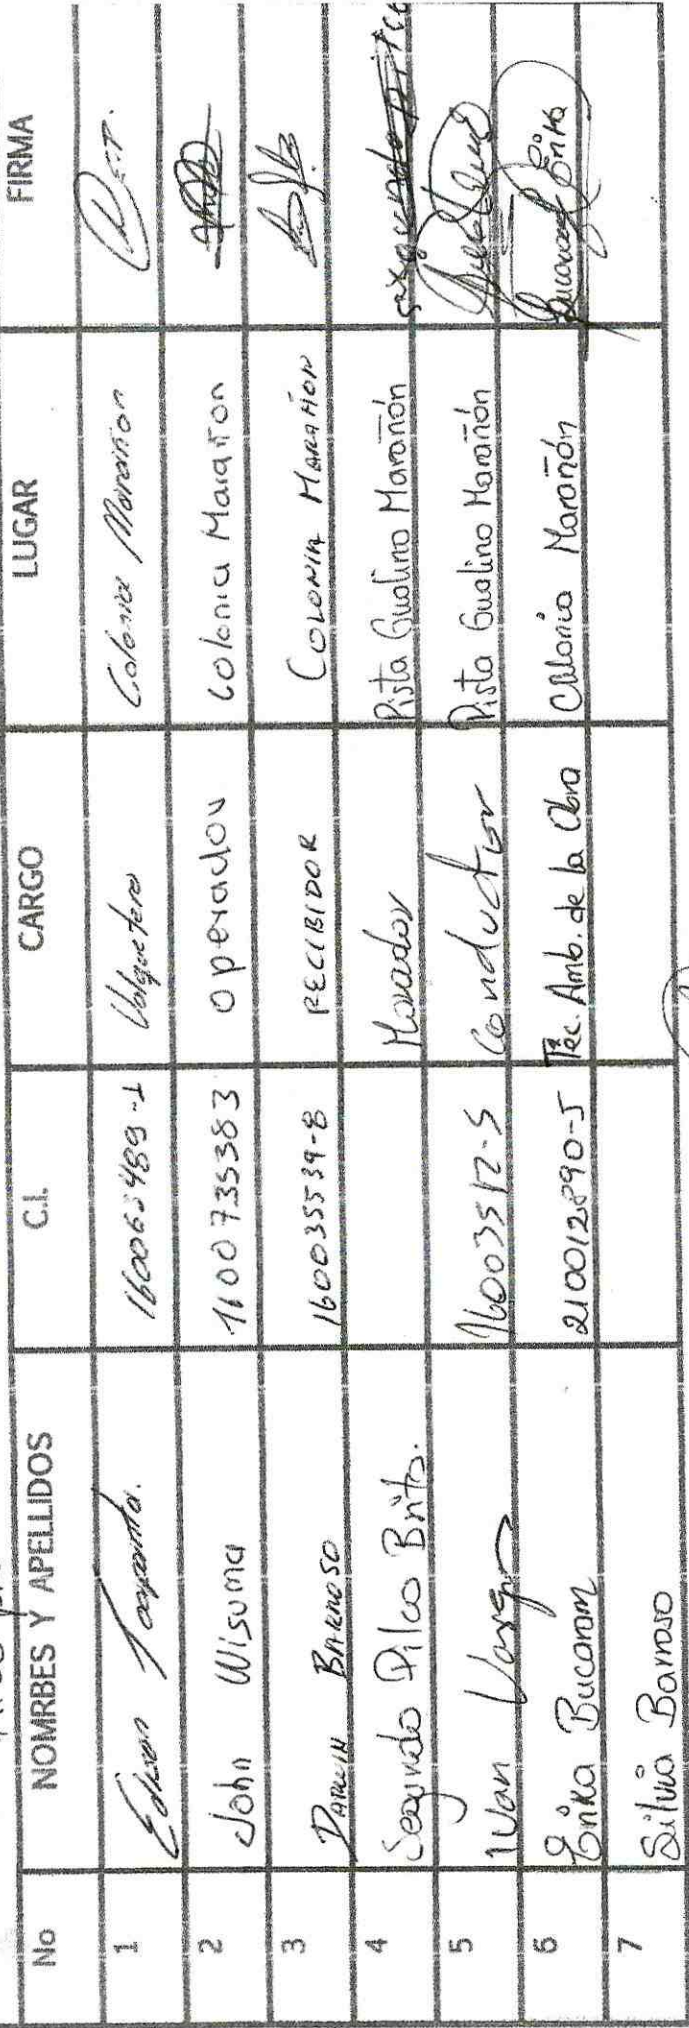 No NOMRBES Y APELLIDOS C.I. CARGO LUGAR FIRMA
1 Edison 1600 489-1 Volquetero Colonia Marañon
2 John Wisuma 1600735383 operador colonia Marañon
3 DARWIN BARROSO 160035539-8 RECIBIDOR COLONIA MARAÑON
4 Segundo Pilco Brito. Morador Pista Gualino Marañón Segundo Pilco
5 Ivan Vargas 160035172-5 Conductor Pista Gualino Marañón
6 Erika Bucaram 210012890-5 Téc. Amb. de la Obra Colonia Marañón Bucaram Erika
7 Silvia Barroso